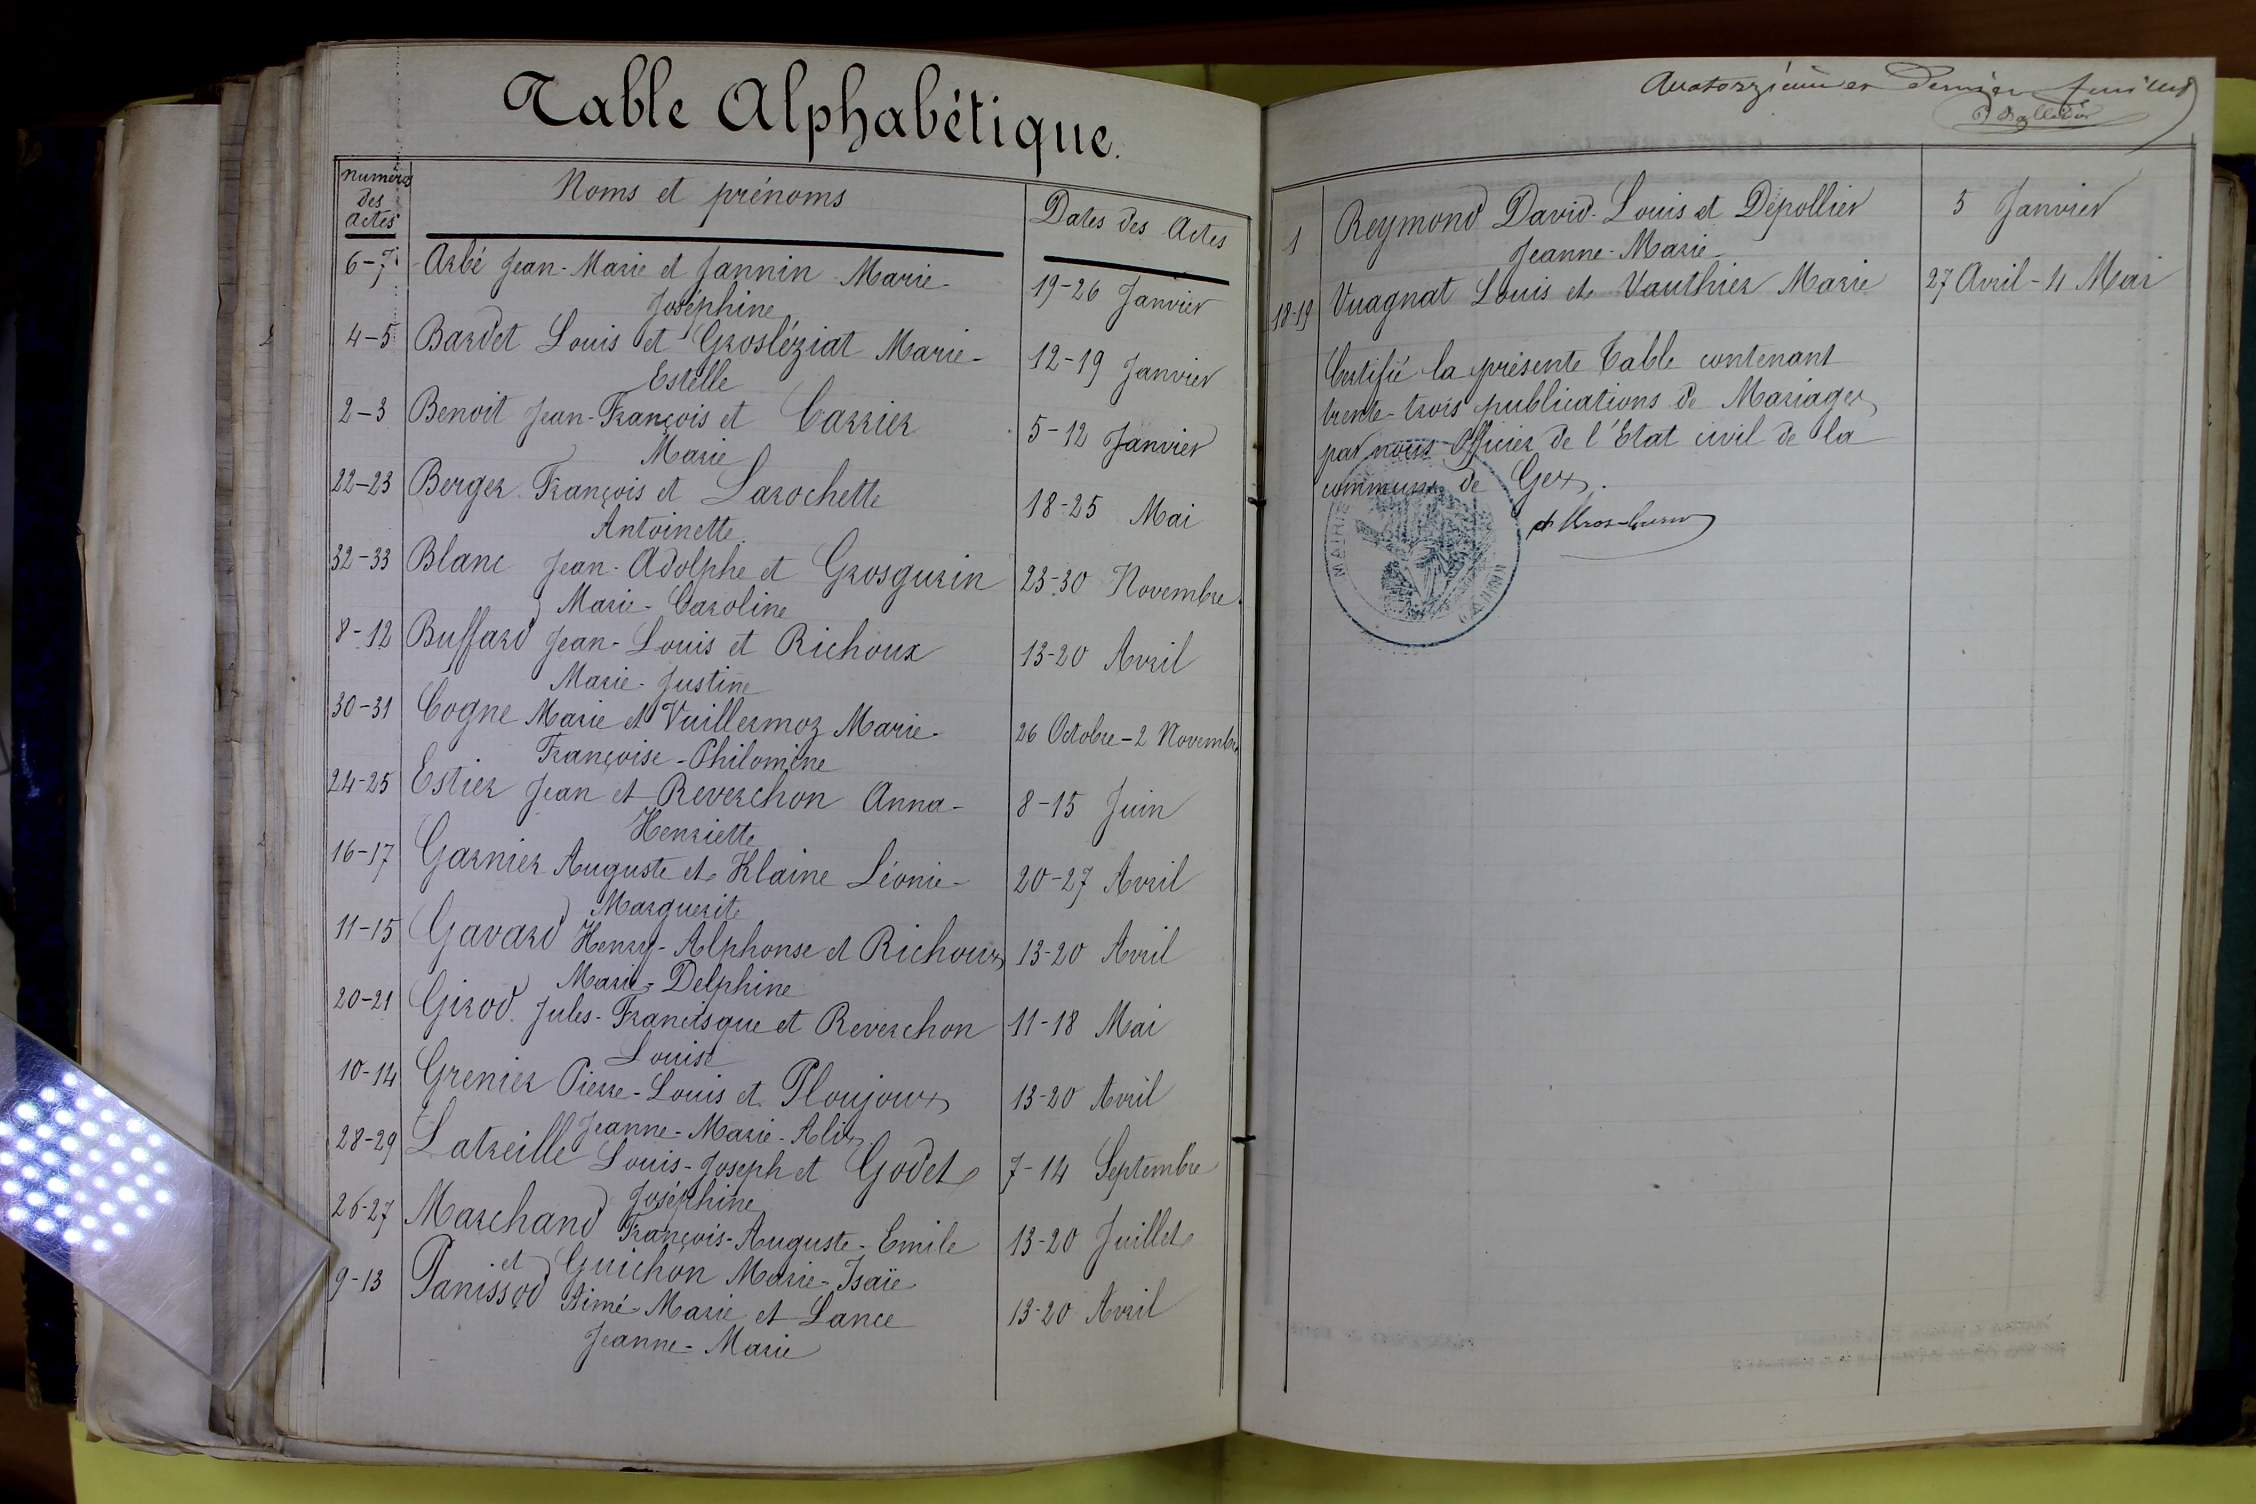 Table Alphabétique.
Numéros des actes Noms et prénoms Dates des Actes
6-7 Arbé Jean-Marie et Jannin Marie- 19-26 Janvier
Joséphine
4-5 Bardet Louis et Grosléziat Marie- 12-19 Janvier
Estelle
2-3 Benoit Jean-François et Carrier 5-12 Janvier
Marie
22-23 Berger François et Larochette 18-25 Mai
Antoinette.
32-33 Blanc Jean-Adolphe et Grosgurin 23-30 Novembre.
Marie-Caroline
8-12 Buffard Jean-Louis et Richoux 13-20 Avril
Marie-Justine
30-31 Cogne Marie et Vuillermoz Marie- 26 Octobre-2 Novembre
Françoise-Philomine
24-25 Estier Jean et Reverchon Anna- 8-15 Juin
Henriette
16-17 Garnier Auguste et Klaine Léonie- 20-27 Avril
Marguerite
11-15 Gavard Henry-Alphonse et Richoux 13-20 Avril
Marie-Delphine
20-21 Girod Jules-Francisque et Reverchon 11-18 Mai
Louise
10-14 Grenier Pierre-Louis et Ploujoux 13-20 Avril
Jeanne-Marie-Alix
28-29 Latreille Louis-Joseph et Godet 7-14 Septembre
Joséphine
26-27 Marchand François-Auguste-Emile 13-20 Juillet
et Guichon Marie-Isaïe
9-13 Panissod Aimé-Marie et Lance 13-20 Avril
Jeanne-Marie
Quatorzième et dernier feuillet
1 Reymond David-Louis et Dépollier 5 Janvier
Jeanne-Marie
18-19 Vuagnat Louis et Vauthier Marie 27 Avril-4 Mai
Certifié la présente Table contenant
trente-trois publications de Mariages
par nous Officier de l'Etat civil de la
commune de Gex.
MAIRIE